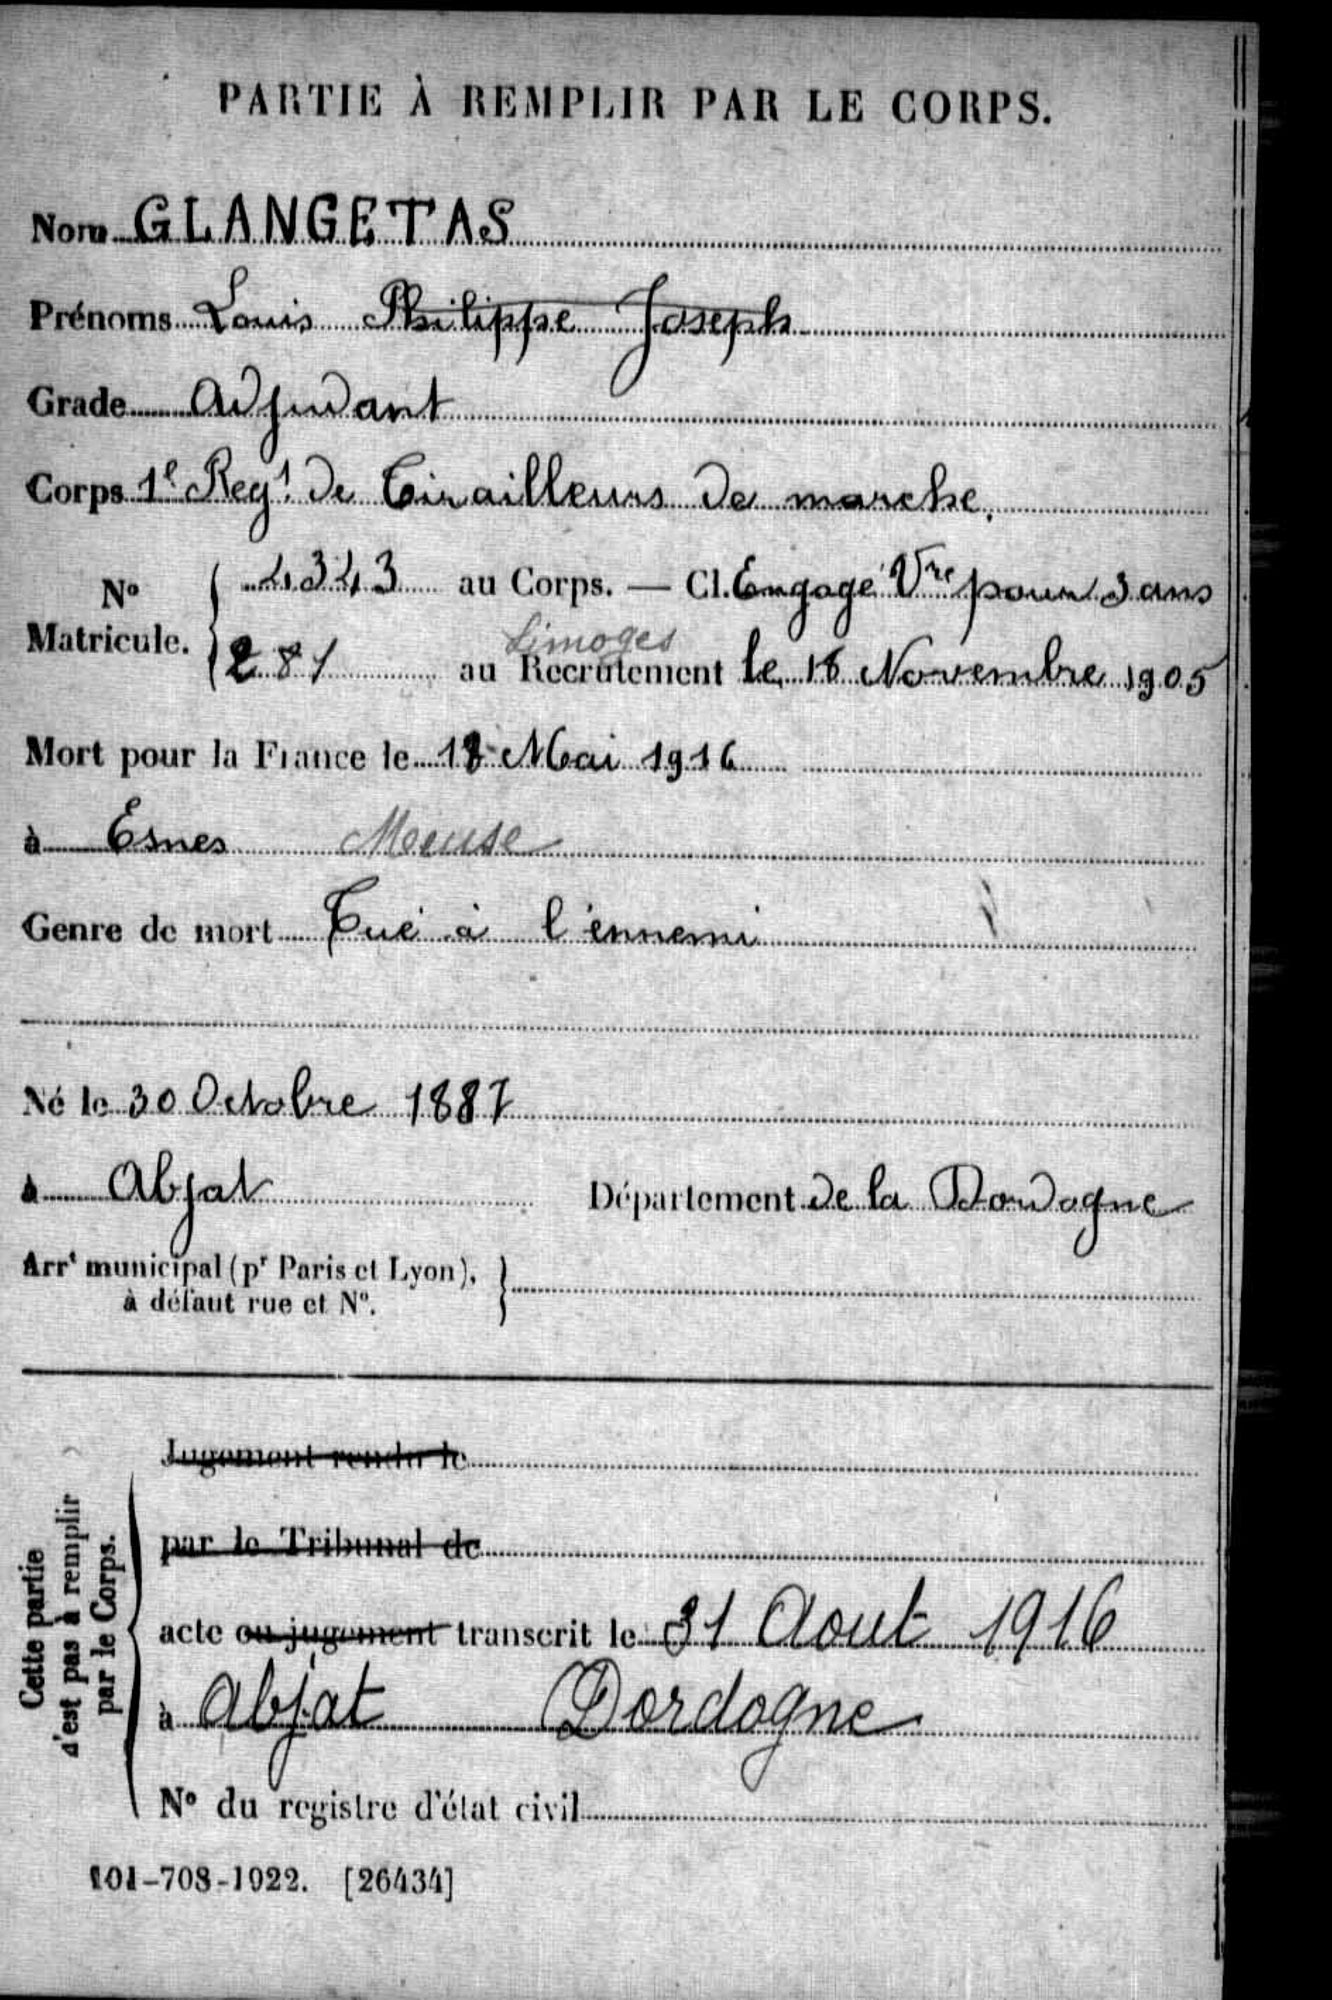 PARTIE À REMPLIR PAR LE CORPS.
Nom GLANGETAS
Prénoms Louis Philippe Joseph
Grade Adjudant
Corps 1e Regt de Tirailleurs de marche.
No Matricule. 4343 au Corps. — Cl. Engagé Vre pour 3 ans
281 au Recrutement Limoges le 18 Novembre 1905
Mort pour la France le 18 Mai 1916
à Esnes Meuse
Genre de mort Tué à l'ennemi
Né le 30 Octobre 1887
à Abjat Département de la Dordogne
Arrt municipal (pr Paris et Lyon),
à défaut rue et No.
Cette partie
n'est pas à remplir
par le Corps.
Jugement rendu le
par le Tribunal de
acte ou jugement transcrit le 31 Aout 1916
à Abjat Dordogne
No du registre d'état civil
101-708-1922. [26434]